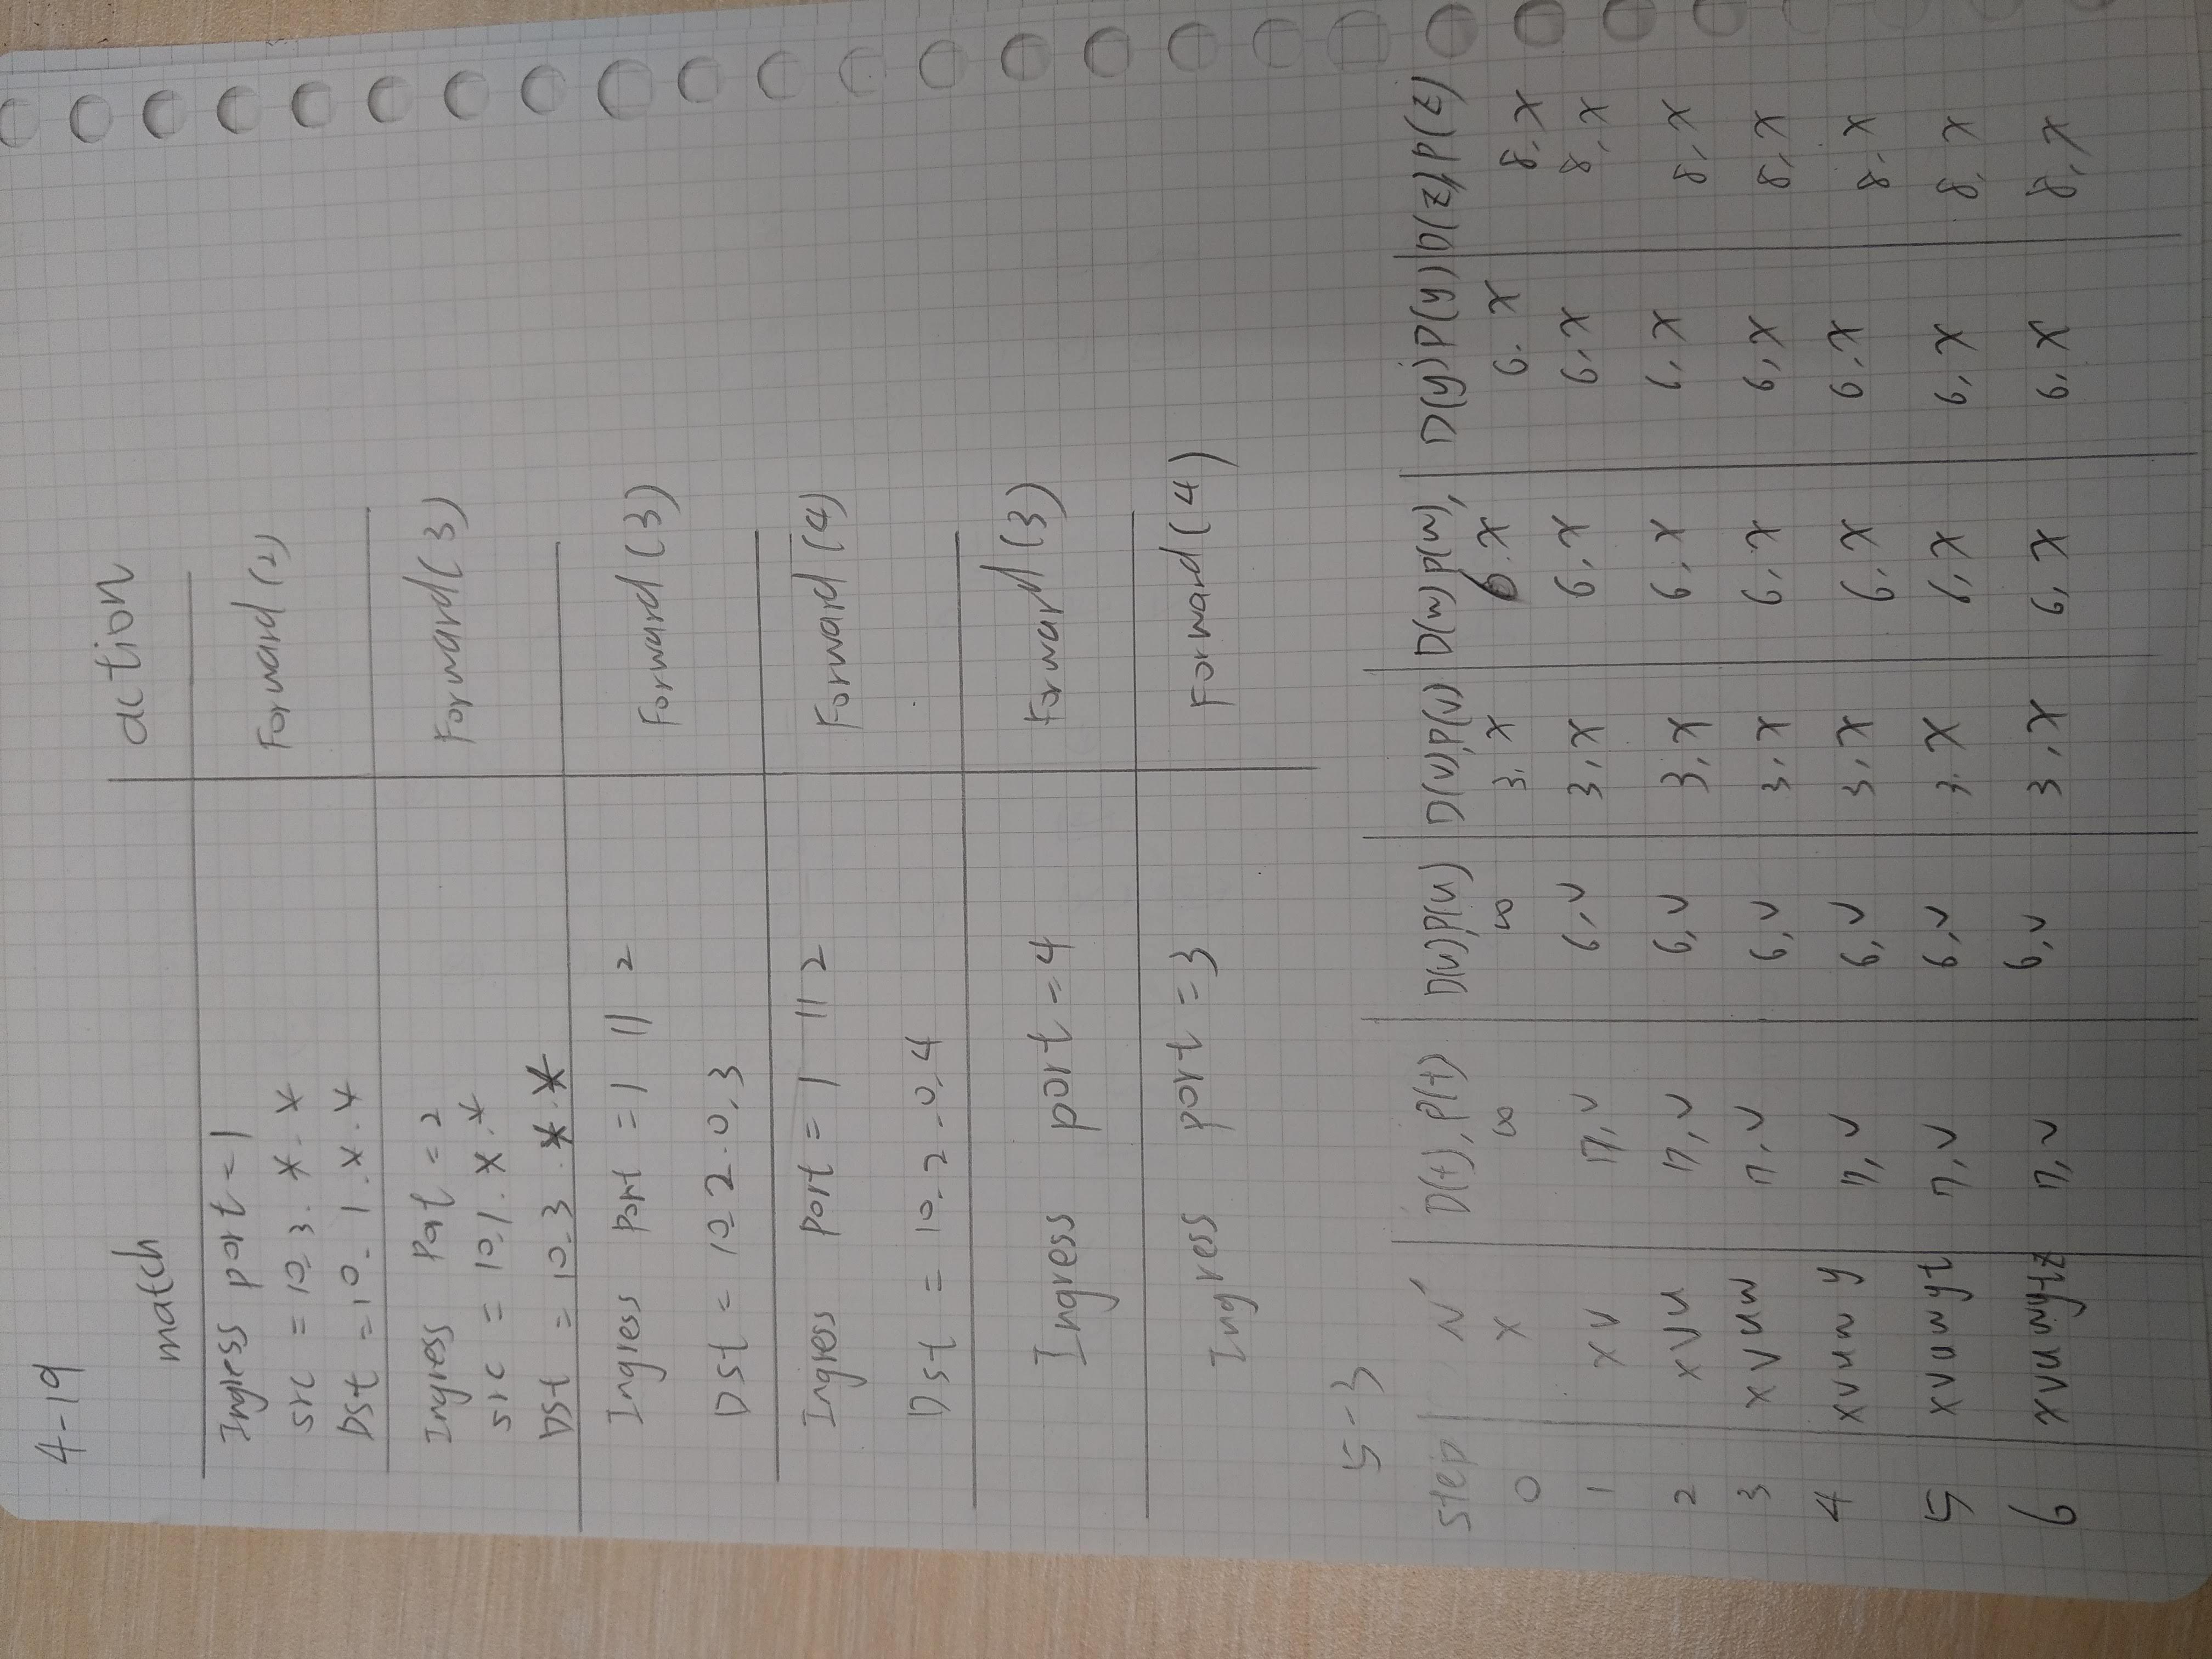 4-19
match action
Ingress port = 1
src = 10.3.*.* Forward (2)
Dst = 10.1.*.*
Ingress Port = 2
src = 10.1.*.* Forward(3)
Dst = 10.3.*.*
Ingress port = 1 || 2 Forward (3)
Dst = 10.2.0.3
Ingress port = 1 || 2 Forward (4)
Dst = 10.2.0.4
Ingress port = 4 Forward (3)
Ingress port = 3 Forward (4)
5-3
step N' D(t), P(t) D(u),P(u) D(v),P(v) D(w) p(w), D(y) P(y) D(z), P(z)
0 x ∞ ∞ 3, x 6.x 6. x 8, x
1 xv 7, v 6, v 3, x 6, x 6, x 8, x
2 xvu 7, v 6, v 3, x 6, x 6, x 8, x
3 xvuw 7, v 6, v 3, x 6, x 6, x 8, x
4 xvuw y 7, v 6, v 3, x 6, x 6, x 8, x
5 xvuwyt 7, v 6, v 3. x 6, x 6, x 8, x
6 xvuwytz 7, v 6, v 3, x 6, x 6, x 8, x